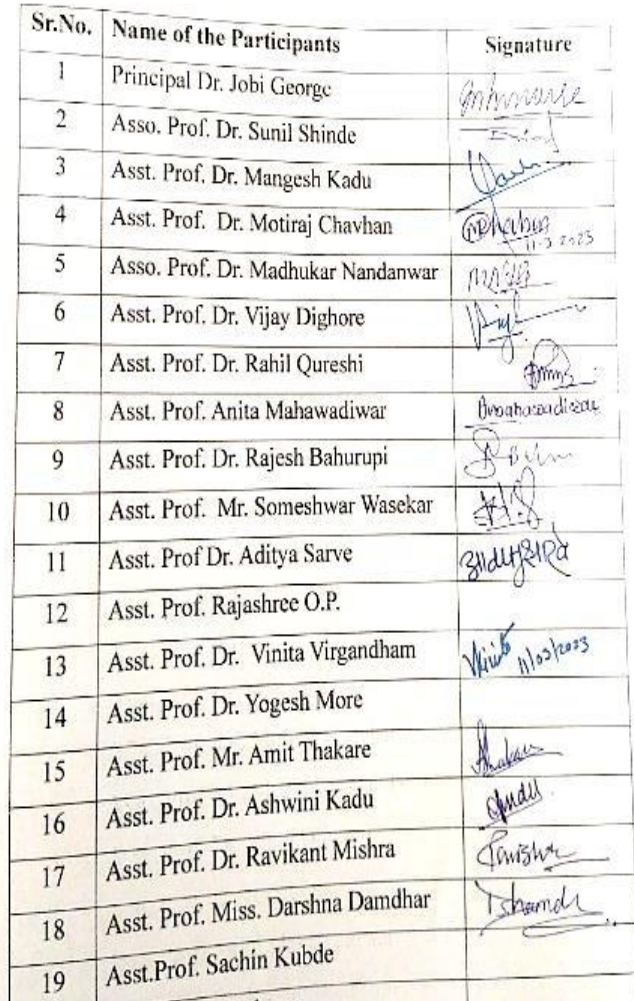 Sr.No. Name of the Participants Signature
1 Principal Dr. Jobi George
2 Asso. Prof. Dr. Sunil Shinde
3 Asst. Prof. Dr. Mangesh Kadu
4 Asst. Prof. Dr. Motiraj Chavhan
5 Asso. Prof. Dr. Madhukar Nandanwar
6 Asst. Prof. Dr. Vijay Dighore
7 Asst. Prof. Dr. Rahil Qureshi
8 Asst. Prof. Anita Mahawadiwar
9 Asst. Prof. Dr. Rajesh Bahurupi
10 Asst. Prof. Mr. Someshwar Wasekar
11 Asst. Prof Dr. Aditya Sarve
12 Asst. Prof. Rajashree O.P.
13 Asst. Prof. Dr. Vinita Virgandham 11/03/2023
14 Asst. Prof. Dr. Yogesh More
15 Asst. Prof. Mr. Amit Thakare
16 Asst. Prof. Dr. Ashwini Kadu
17 Asst. Prof. Dr. Ravikant Mishra
18 Asst. Prof. Miss. Darshna Damdhar
19 Asst.Prof. Sachin Kubde